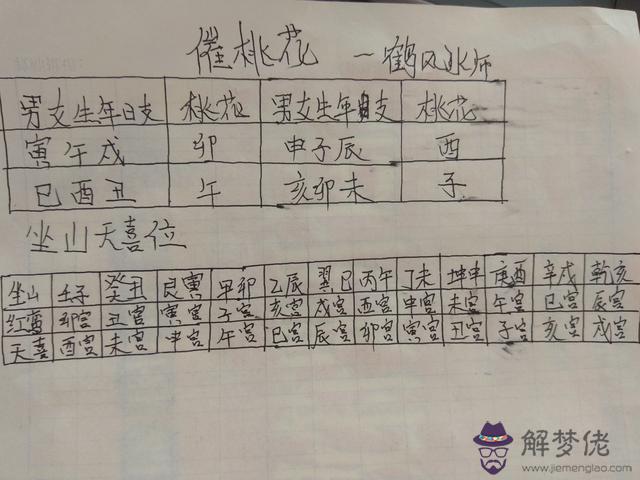 催桃花 一鹤风水师
男女生年日支 桃花 男女生年日支 桃花
寅午戌 卯 申子辰 酉
巳酉丑 午 亥卯未 子
坐山天喜位
坐山 壬子 癸丑 艮寅 甲卯 乙辰 巽巳 丙午 丁未 坤申 庚酉 辛戌 乾亥
红鸾 卯宫 丑宫 寅宫 子宫 亥宫 戌宫 酉宫 申宫 未宫 午宫 巳宫 辰宫
天喜 酉宫 未宫 申宫 午宫 巳宫 辰宫 卯宫 寅宫 丑宫 子宫 亥宫 戌宫
解梦佬
www.jiemenglao.com